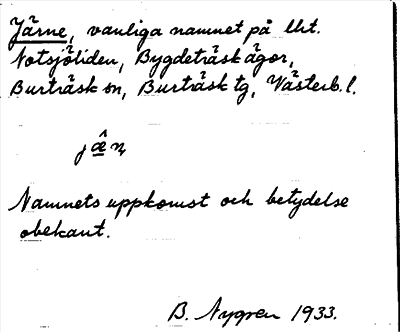 Järne, vanliga namnet på lht.
Notsjöliden, Bygdeträsk ägor,
Burträsk sn, Burträsk tg, Västerb. l.
jæ̂ṇ
Namnets uppkomst och betydelse
obekant.
B. Nygren 1933.